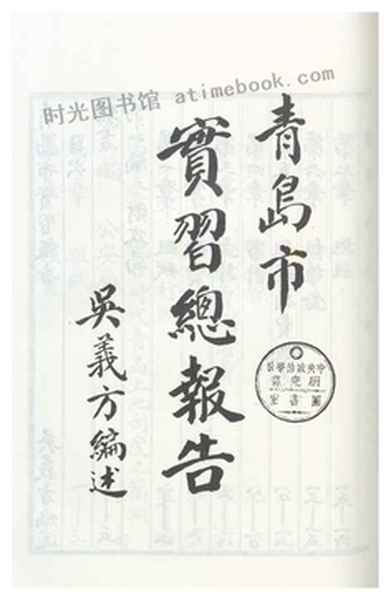 时光图书馆 atimebook.com
青島市
實習總報告
吳義方編述
中央政治學校
研究部
圖書室